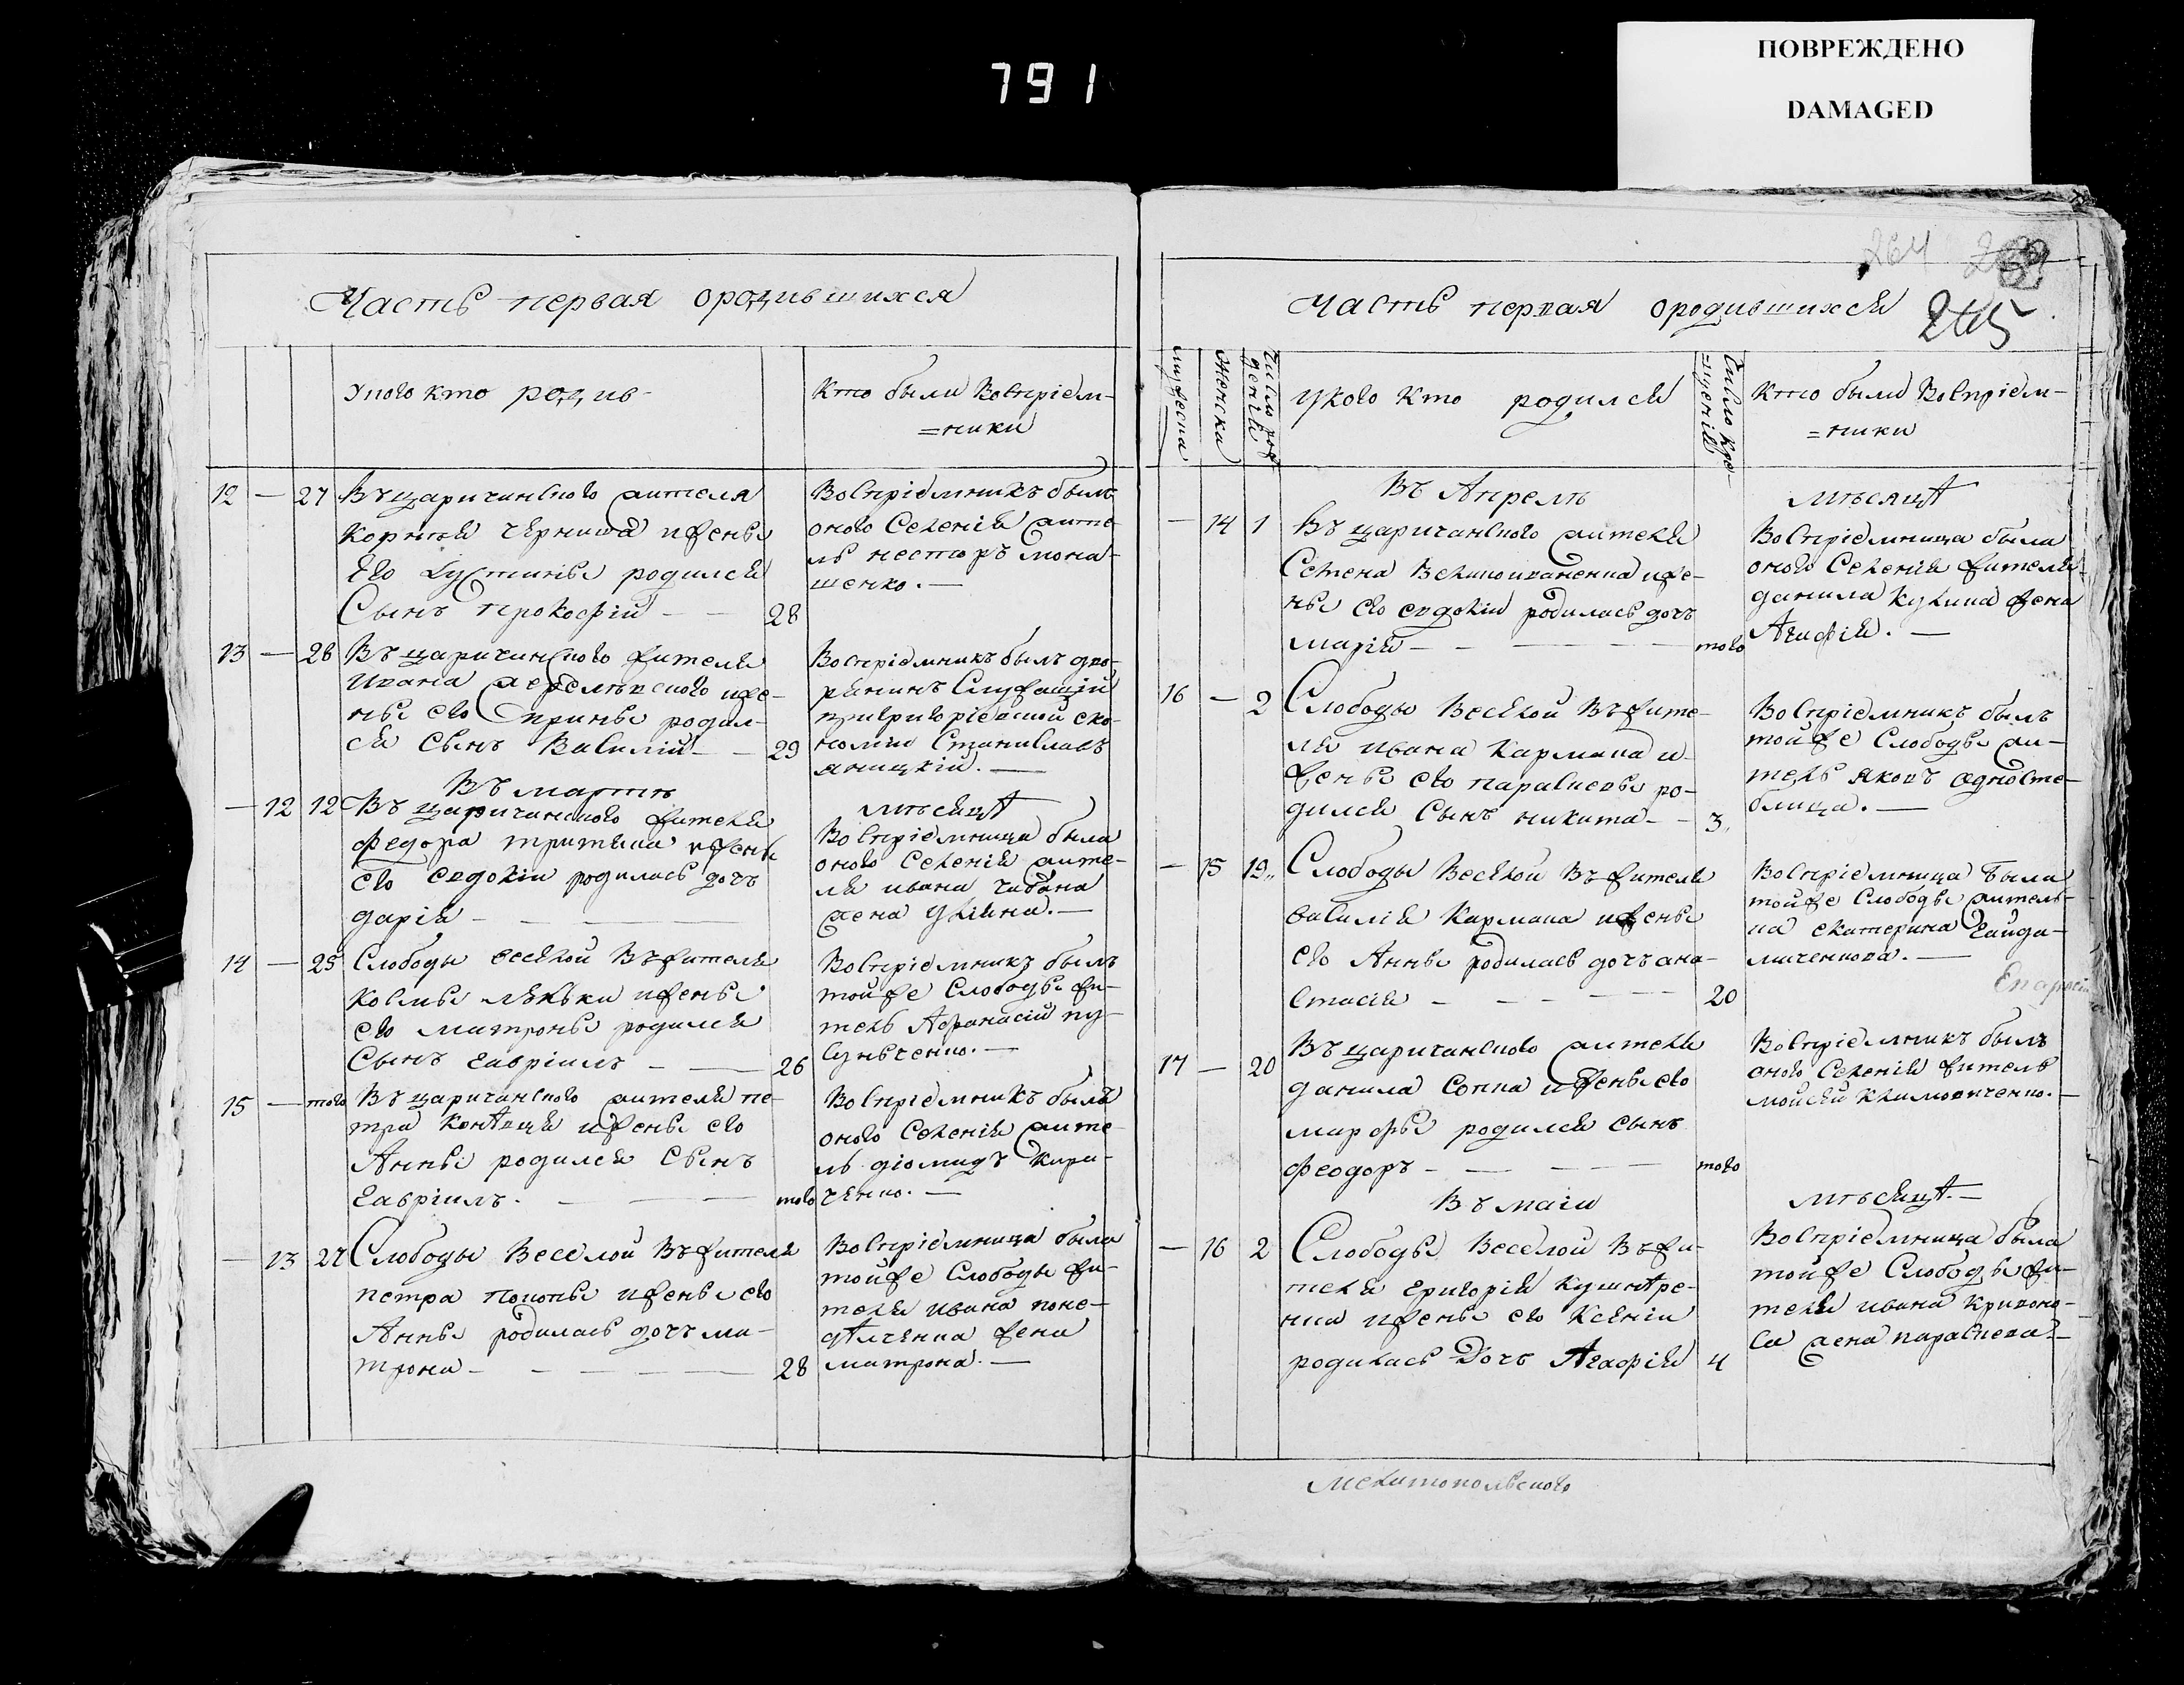 791
ПОВРЕЖДЕНО
DAMAGED
Часть первая ородившихся
Укого кто родив-
Кто были Воспріем-
=ники
12 — 27 Въ царичанского жителя
Корнѣя черниша ижены
Его Іустины родился
Сынъ прокофій — — 28
Воспріемникъ былъ
оного Селенія жите-
ль несторъ мона-
шенко. —
13 — 28 Въ царичанского жителя
Ивана иже-
ны его Ирины родил-
ся Сынъ Василій — — 29
Воспріемникъ былъ дво-
рянинъ Служащій
григоріевской еко-
номіи Станиславъ
яницкій. —
Въ мартѣ
мѣсяцѣ
— 12 12 Въ царичанского жителя
федора ижены
его евдокіи родилась дочь
дарія — — —
Воспріемница была
оного Селенія жите-
ля ивана чабана
жена Уліяна. —
14 — 25 Слободы веселой Въ жителя
Космы ижены
его матроны родился
Сынъ гавріилъ — — 26
Воспріемникъ былъ
тойже Слободы жи-
тель Афанасій пу-
—
15 — того Въ царичанского жителя пе-
тра ижены его
Анны родился Сынъ
гавріилъ. — — — того
Воспріемникъ былъ
оного Селенія жите-
ль діомидъ кири-
ченко. —
— 13 27 Слободы Веселой Въ жителя
петра ижены его
Анны родилась дочь ма-
трона — — — — 28
Воспріемница была
тойже Слободы жи-
теля ивана поне-
дѣлченка жена
матрона. —
264
265
Часть первая ородившихся
мужеска
женска
Число рож-
денія
Укого Кто родился
Число кре-
=щенія
Кто были Воспріем-
=ники
Въ Апрелѣ
мѣсяцѣ
— 14 1 Въ царичанского жителя
Семена Великоиваненка иже-
ны его евдокіи родилась дочь
марія — — — того
Воспріемница была
оного Селенія жителя
данила Кулика жена
Агафія. —
16 — 2 Слободы Веселой Въ жите-
ля ивана Кармана и
жены его параскевы ро-
дился Сынъ никита — — 3
Воспріемникъ былъ
тойже Слободы жи-
тель яковъ
—
— 15 19 Слободы Веселой Въ жителя
василія Кармана ижены
его Анны родилась дочь ана-
стасія — — — — 20
Воспріемница была
тойже Слободы житель-
ка екатерина гайда-
маченкова. —
17 — 20 Въ царичанского жителя
данила Сопна ижены его
марфы родился сынъ
феодоръ — — — того
Воспріемникъ былъ
оного Селенія житель
мойсей климовиченко. —
Въ маіи
мѣсяцѣ. —
— 16 2 Слободы Веселой Въ жи-
теля григорія кушнѣре-
нка ижены его Ксеніи
родилась Дочь Агафія 4
Воспріемница была
тойже Слободы жи-
теля ивана кривоно-
са жена параскева. —
мелитопольского